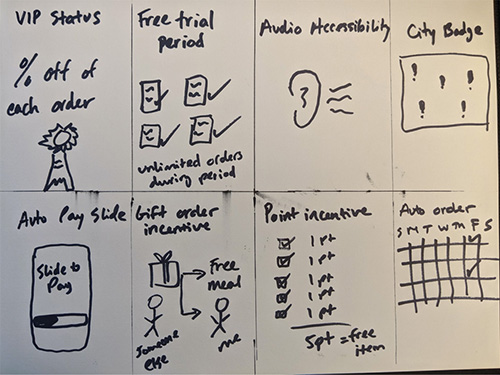 VIP Status
% off of
each order
Free trial
period
unlimited orders
during period
Audio Accessibility
City Badge
! ! !
! !
Auto Pay Slide
Slide to
Pay
Gift order
incentive
Free
meal
Someone
else
me
Point incentive
1 pt
1 pt
1 pt
1 pt
1 pt
5pt = free
item
Auto order
S M T W Th F S